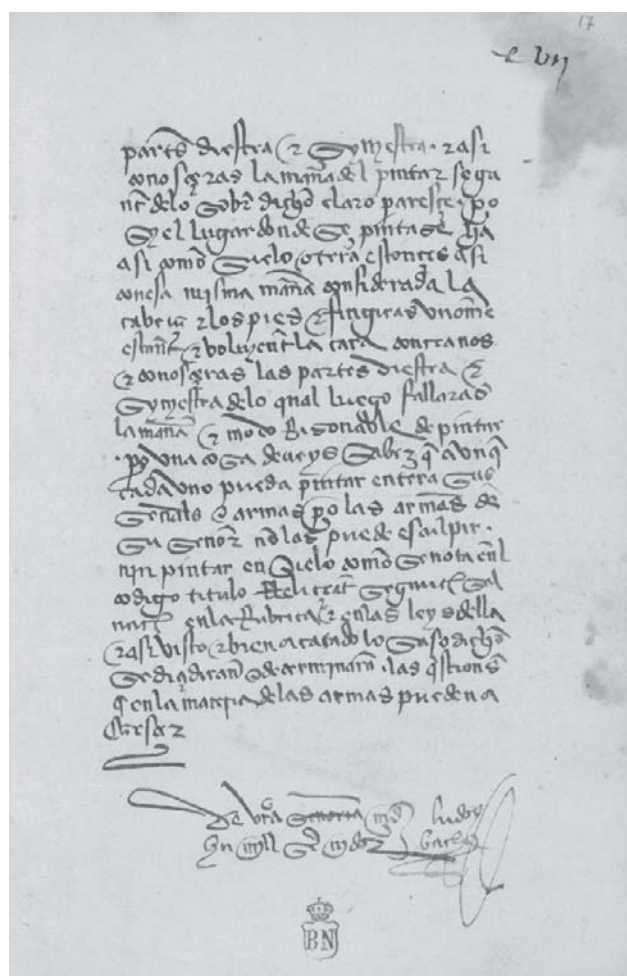 17
partes diestra & Synjestra · & asi
conosçeras la man̄a del pintar segu
nt delo Sobre dicho claro paresçe · p̱o
Sy el lugar donde Se pinta Se ha
asi como Suelo o tera estonces asi
conesa misma man̄a considerada la
cabeça & los pies & fingiras un om̄e
estant & voluient la cara contra nos
& conosçeras las partes diestra &
Synjestra delo qual luego fallaras
la man̄a & modo Rasonable de pintar
· p̱o una cosa deueys Saber q̄ aunq̄
cada uno pueda pintar entera Sus
Señales o armas p̱o las armas de
Su Señor no las puede esculpir ·
njn pintar en Suelo como Se nota en l
codigo titulo
en la Rubrica & en las leys della
& asi visto & bien acatado lo Suso dicho
Se diudicaran o determinaran · las q̄stiones
q̄ en la materia de las armas pueden a
Cahesçer
De vr̄a Senoria
BN